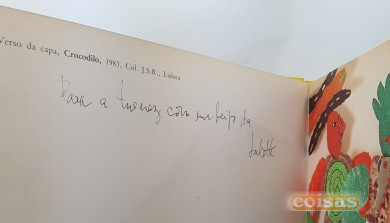 Verso da capa, Crocodilo, 1983, Col. J.S.R., Lisboa
Para a
com um beijo da
coisas